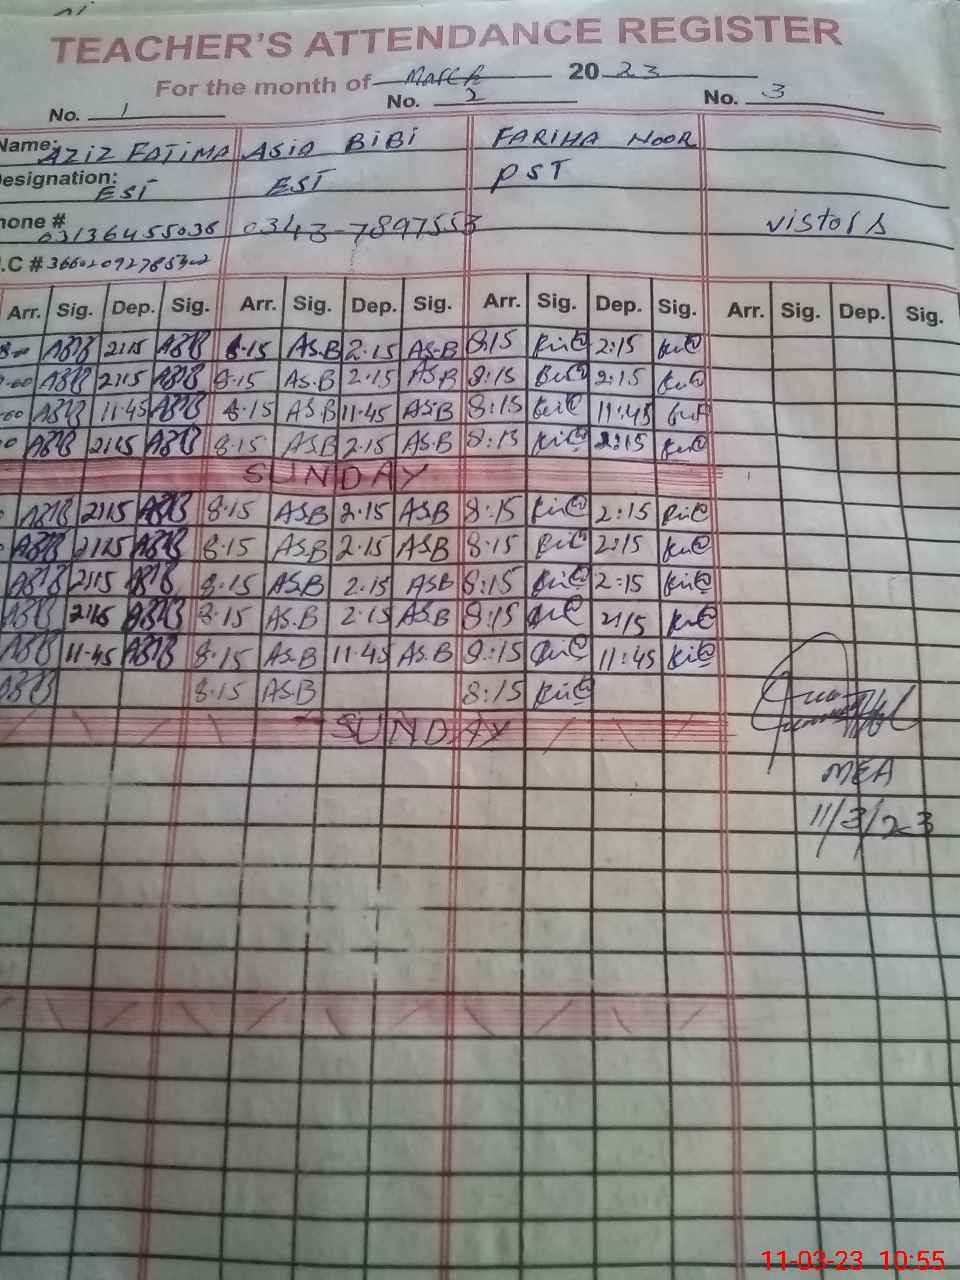 TEACHER'S ATTENDANCE REGISTER
For the month of March 2023
No. 1 No. 2 No. 3
Name: AZIZ FATIMA ASIA BIBI FARIHA NOOR
Designation: EST EST PST
hone # 03136455036 0343-7897553 vistors
.C #
Arr. Sig. Dep. Sig. Arr. Sig. Dep. Sig. Arr. Sig. Dep. Sig. Arr. Sig. Dep. Sig.
2:15 8.15 AS.B 2.15 AS.B 8:15 2:15
2:15 8.15 AS.B 2.15 ASB 8:15 2:15
11.45 8.15 ASB 11.45 ASB 8:15 11:45
2:15 8.15 ASB 2.15 ASB 8:15 2:15
SUNDAY
2:15 8.15 ASB 2.15 ASB 8:15 2:15
2:15 8.15 ASB 2.15 ASB 8:15 2:15
2:15 8.15 ASB 2.15 ASB 8:15 2:15
2:15 8.15 ASB 2.15 ASB 8:15 2:15
11.45 8.15 AS.B 11.45 AS.B 8:15 11:45
8.15 ASB 8:15
SUNDAY
MEA
11/3/23
11-03-23 10:55